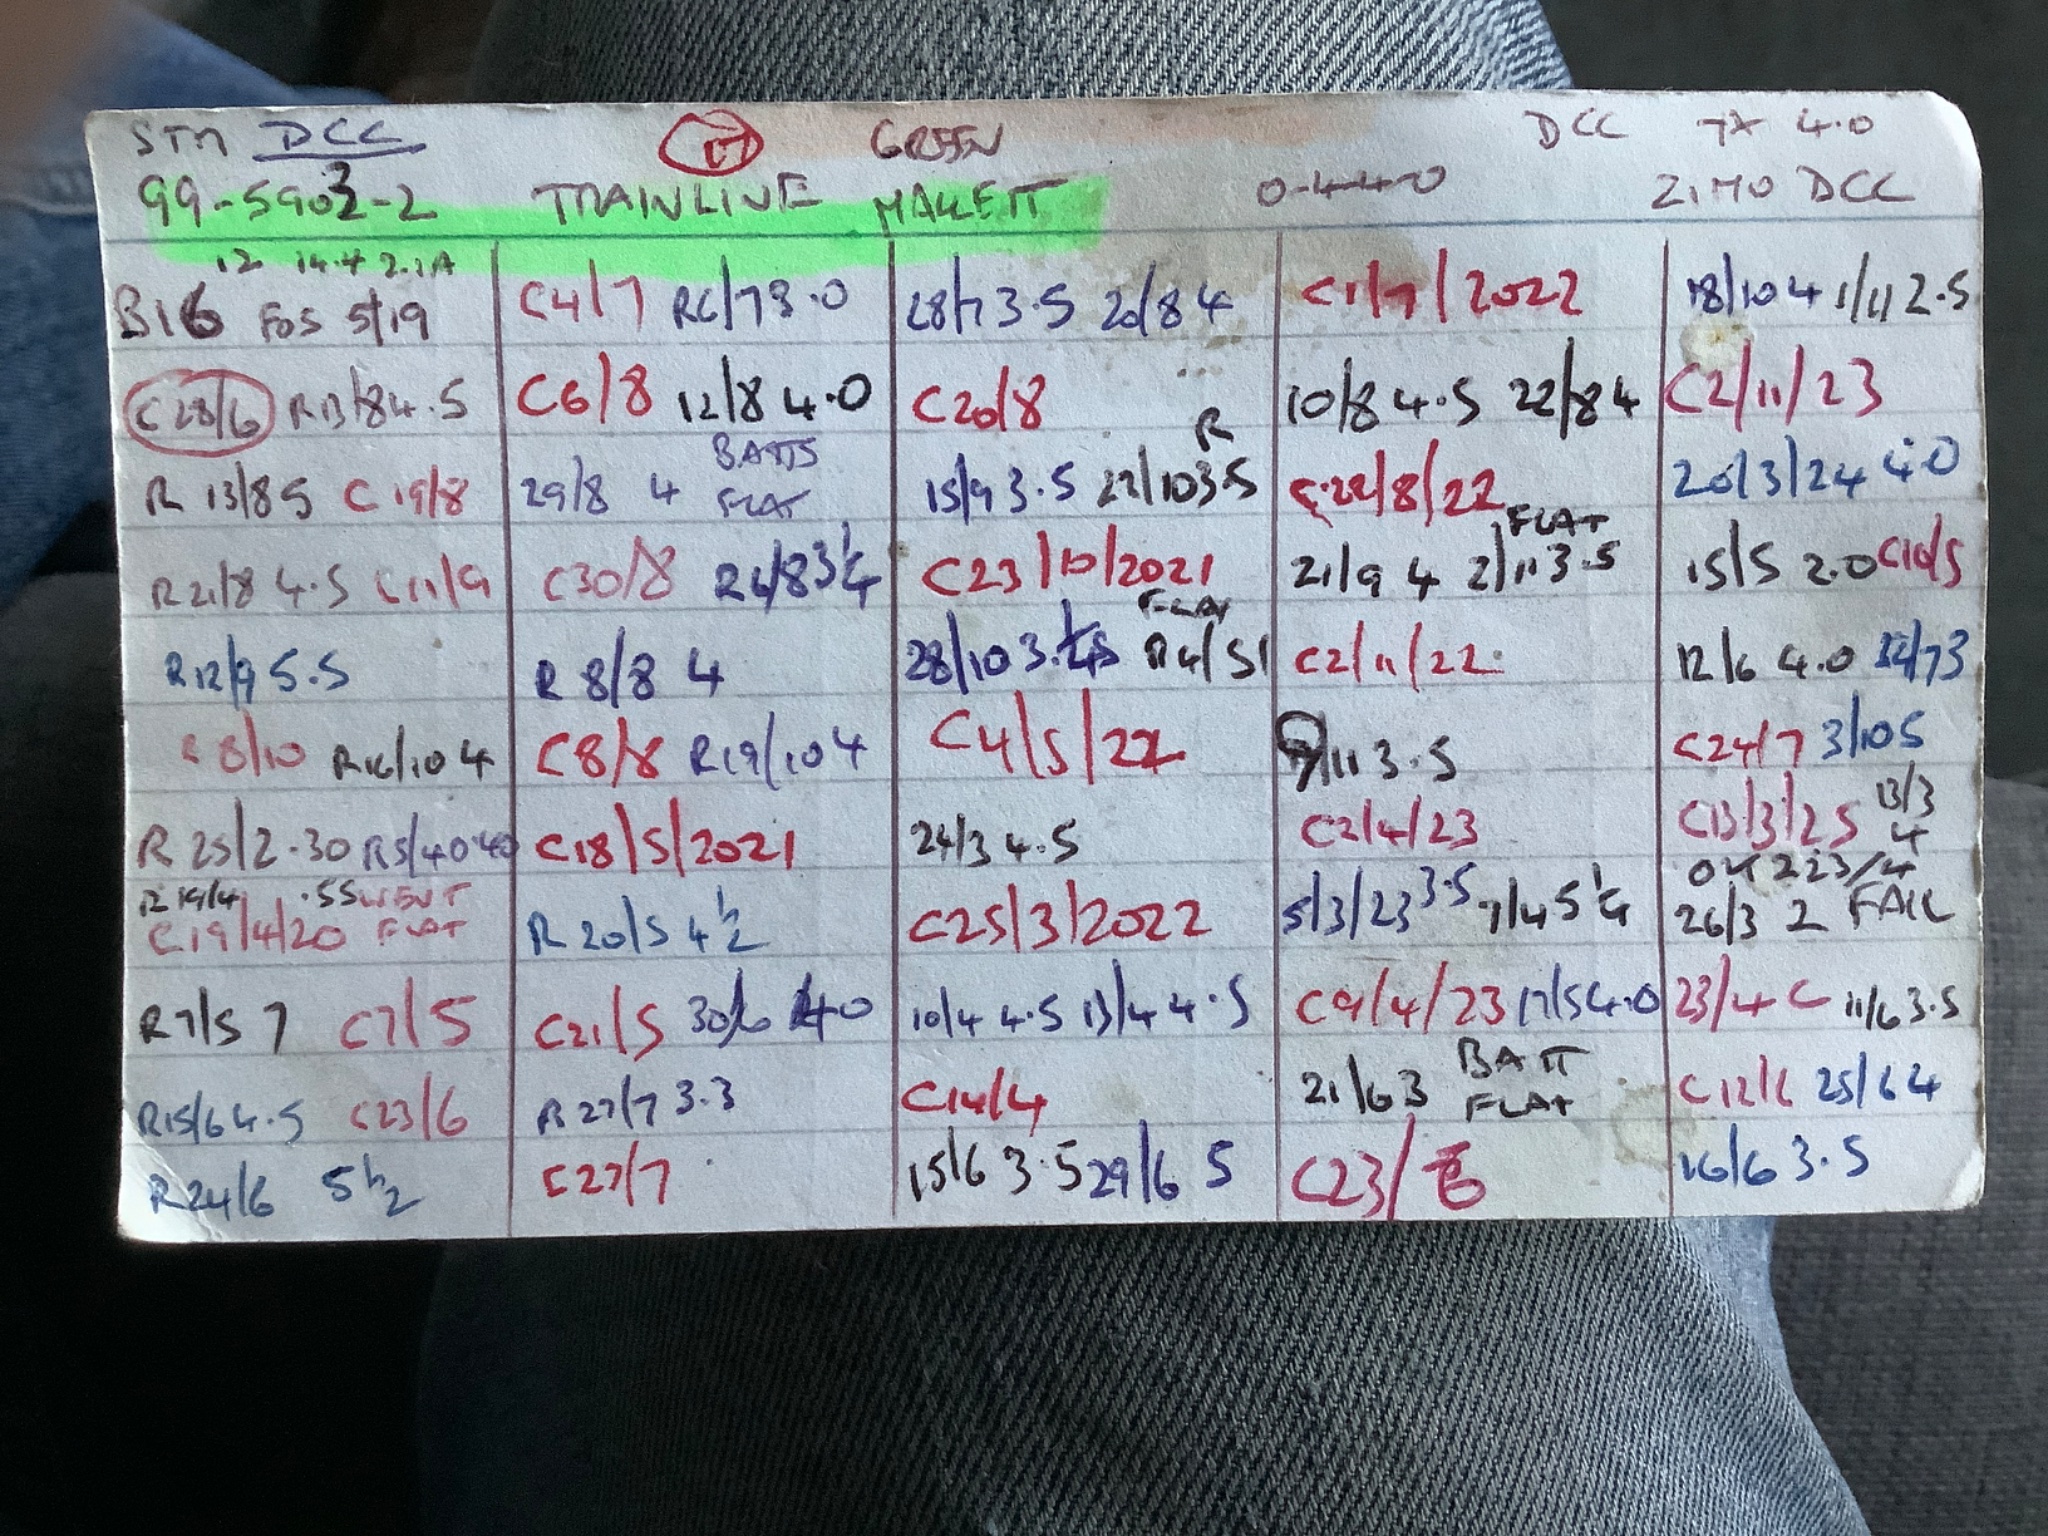 STM DCC GREEN DCC TX 4.0
99-5903-2 TRAINLINE MALLETT 0-4-4-0 ZIMO DCC
12 14.4 2.1A
B16 FOS 5/19
C28/6 R13/8 4.5
R 13/8 5 C 19/8
R21/8 4.5 C11/9
R12/9 5.5
8/10 R16/10 4
R 25/2 .30 R5/4 0.40
R 19/4 .55 WENT
C19/4/20 FLAT
R7/5 7 C7/5
R15/6 4.5 C23/6
R24/6 5 1/2
C4/7 R6/7 3.0
C6/8 12/8 4.0
29/8 4 BATTS
FLAT
C30/8 R6/8 3 1/4
R 8/8 4
C8/8 R19/10 4
C18/5/2021
R 20/5 4 1/2
C21/5 30/6 4.0
R 27/7 3.3
C27/7
28/7 3.5 20/8 4
C20/8
R
15/9 3.5 22/10 3.5
C23/10/2021
FLAT
28/10 R4/5 1
C4/5/22
24/3 4.5
C25/3/2022
10/4 4.5 13/4 4.5
C14/4
15/6 3.5 29/6 5
C1/7/2022
10/8 4.5 22/8 4
C 22/8/22
FLAT
21/9 4 2/11 3.5
C2/11/22
/11 3.5
C2/4/23
5/3/23 3.5 7/4 5 1/4
C9/4/23 17/5 4.0
21/6 3 BATT
FLAT
C23/6
18/10 4 1/11 2.5
C2/11/23
20/3/24 4.0
15/5 2.0 C10/5
12/6 4.0 12/7 3
C24/7 3/10 5
C13/3/25 13/3
4
OK 2 23/4
26/3 2 FAIL
23/4 C 11/6 3.5
C12/6 25/6 4
16/6 3.5